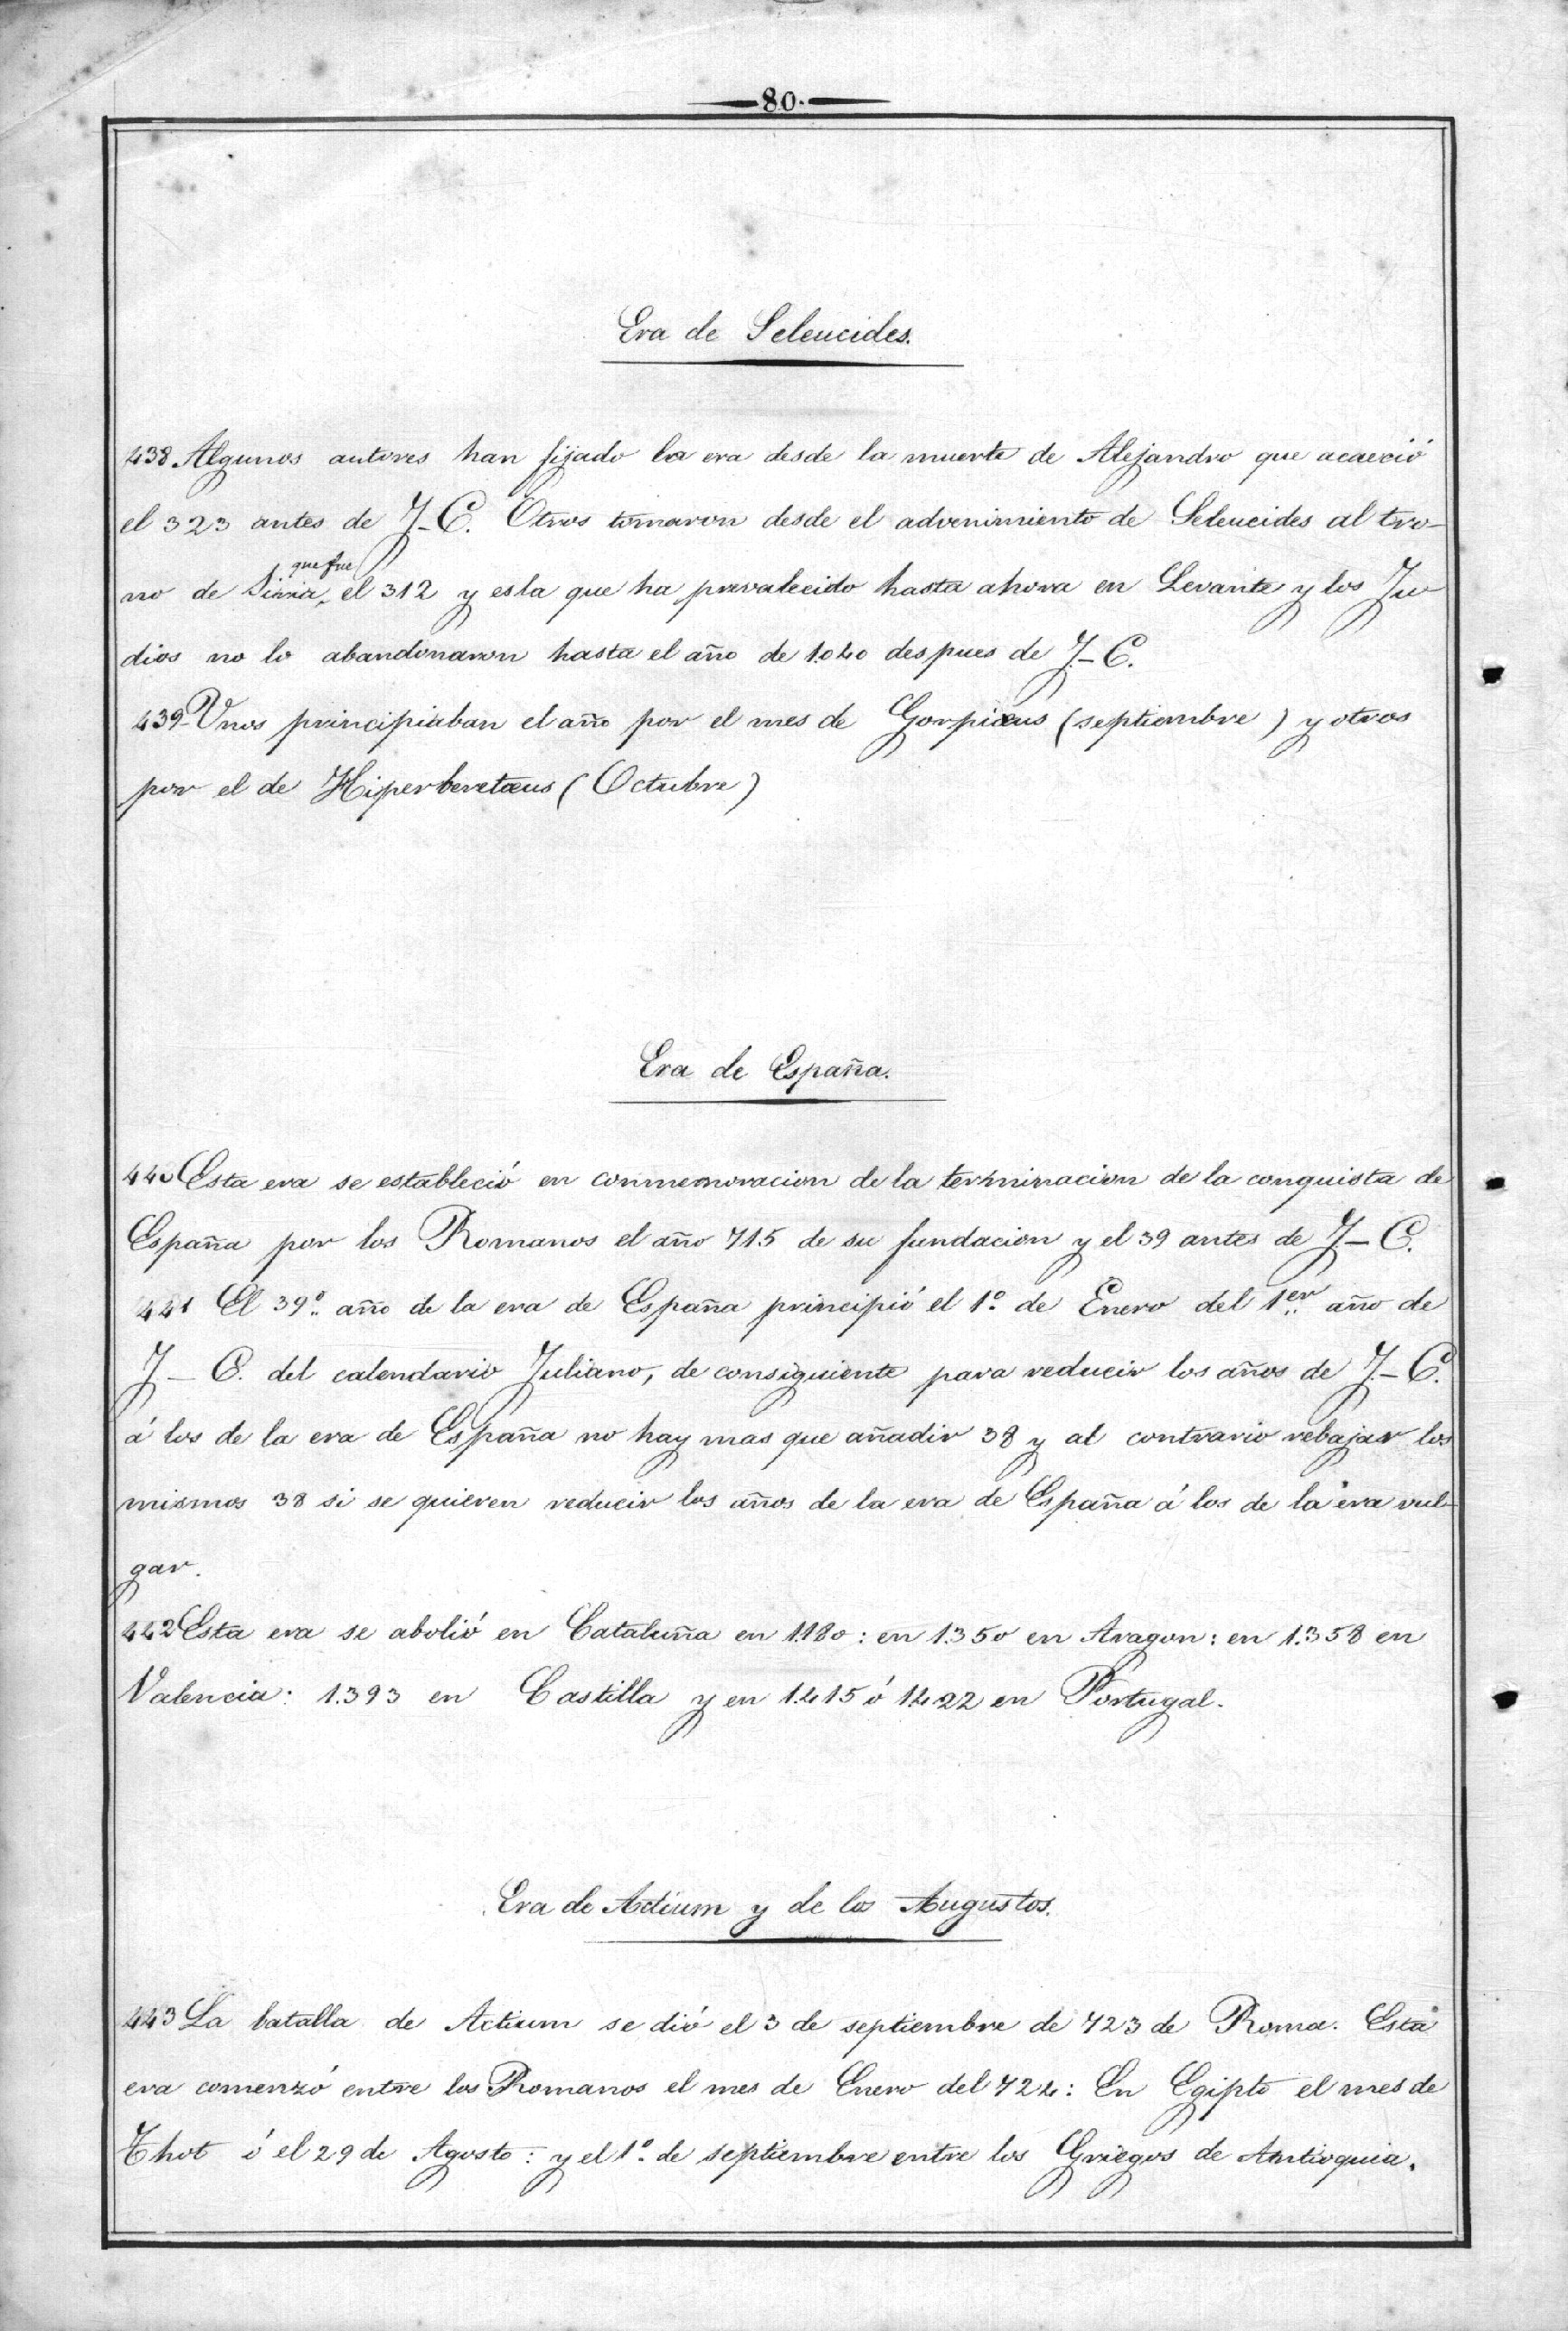 80.
Era de Seleucides.
438 Algunos autores han fijado la era desde la muerte de Alejandro que acaeció
el 323 antes de J-C. Otros tomaron desde el advenimiento de Seleucides al tro-
que fue
no de Siria, el 312 y esla que ha prevalecido hasta ahora en Levante y los Ju
dios no lo abandonaron hasta el año de 1.040 despues de J-C.
439-Unos principiaban el año por el mes de Gorpiæus (septiembre) y otros
por el de Hiperberetæus (Octubre)
Era de España.
440 Esta era se estableció en conmemoracion de la terminacion de la conquista de
España por los Romanos el año 715 de su fundacion y el 39 antes de J-C.
441 El 39º año de la era de España principió el 1º de Enero del 1er año de
J-C. del calendario Juliano, de consiguiente para reducir los años de J-C.
á los de la era de España no hay mas que añadir 38 y al contrario rebajar los
mismos 38 si se quieren reducir los años de la era de España á los de la era vul-
gar.
442 Esta era se abolió en Cataluña en 1.180: en 1.350 en Aragon: en 1.358 en
Valencia: 1.393 en Castilla y en 1.415 ó 1422 en Portugal.
Era de Actium y de los Augustos.
443 La batalla de Actium se dió el 3 de septiembre de 723 de Roma. Esta
era comenzó entre los Romanos el mes de Enero del 724: En Egipto el mes de
Thot ó el 29 de Agosto: y el 1º de septiembre entre los Griegos de Antioquia.